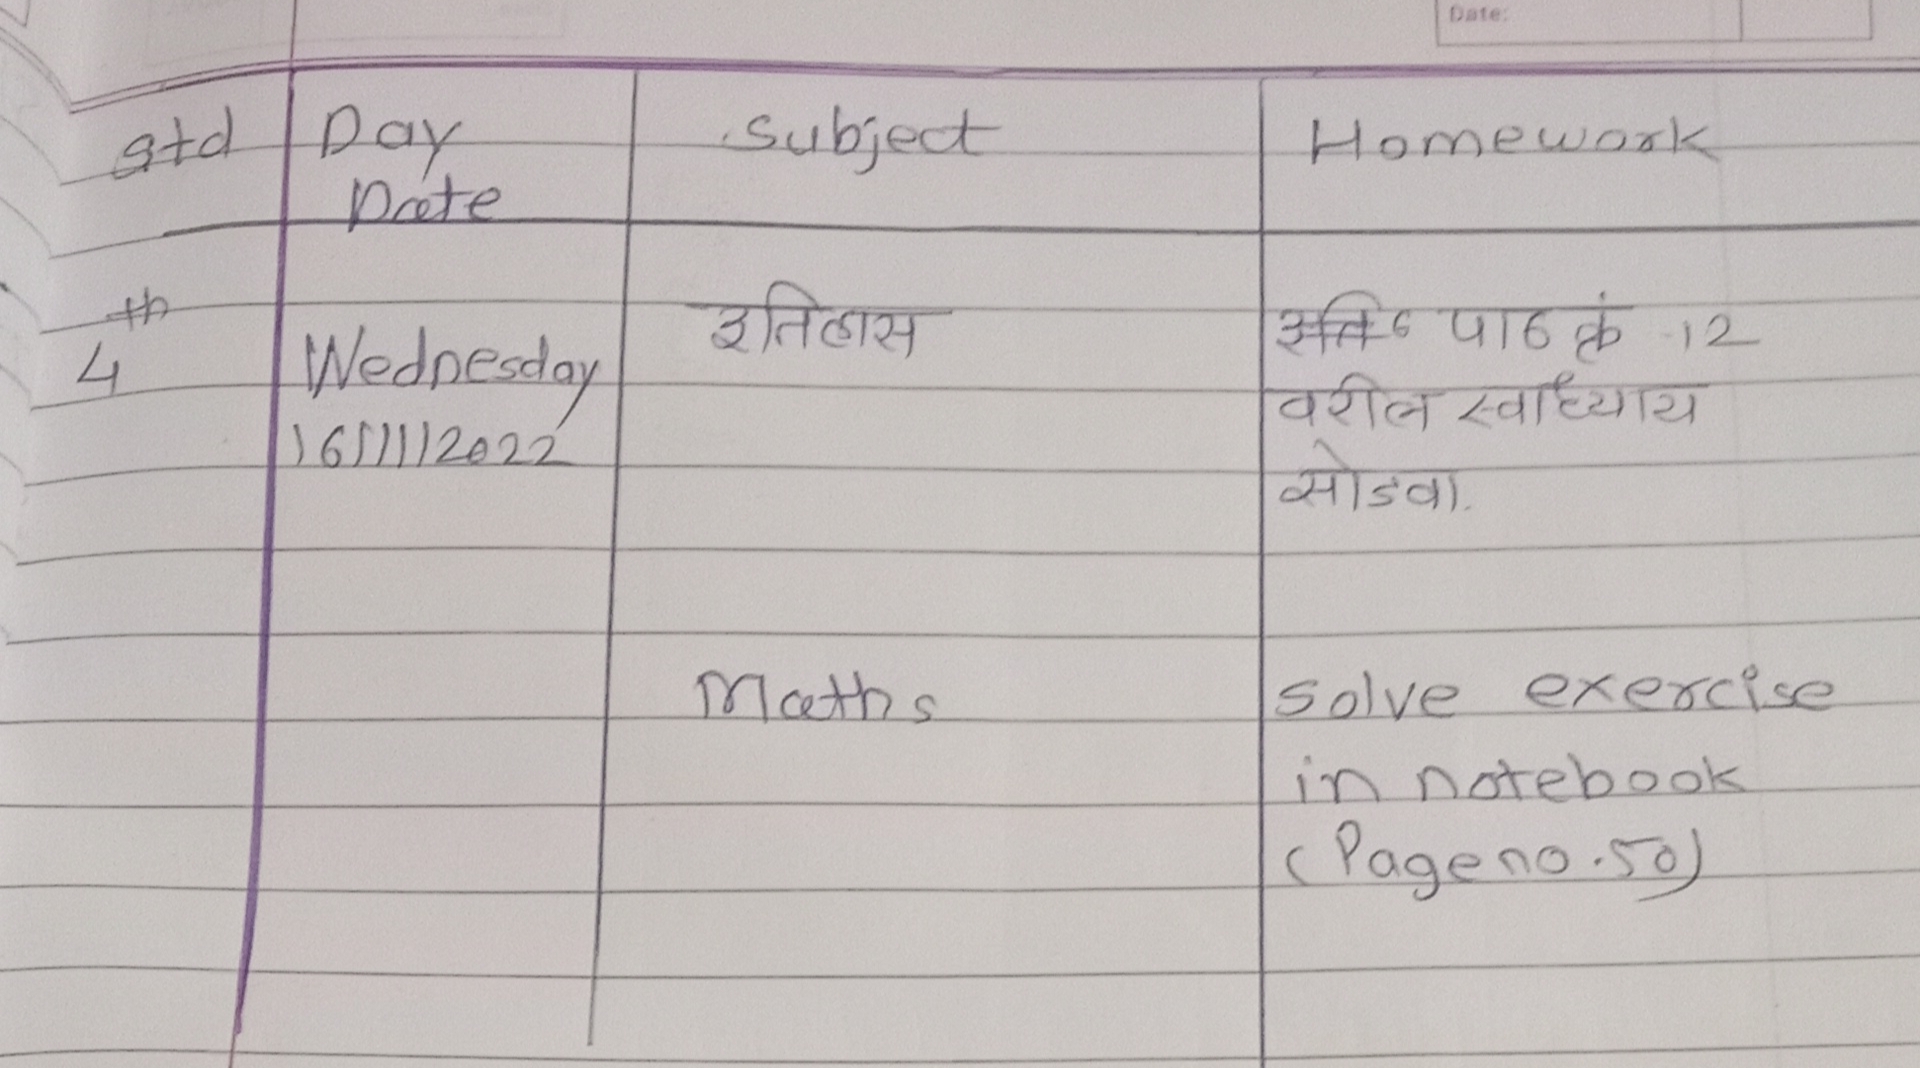 Date:
std Day Subject Homework
Date
4th Wednesday इतिहास पाठ क्रं .12
16/11/2022 वरील स्वाध्याय
सोडवा.
Maths solve exercise
in notebook
(Page no.50)